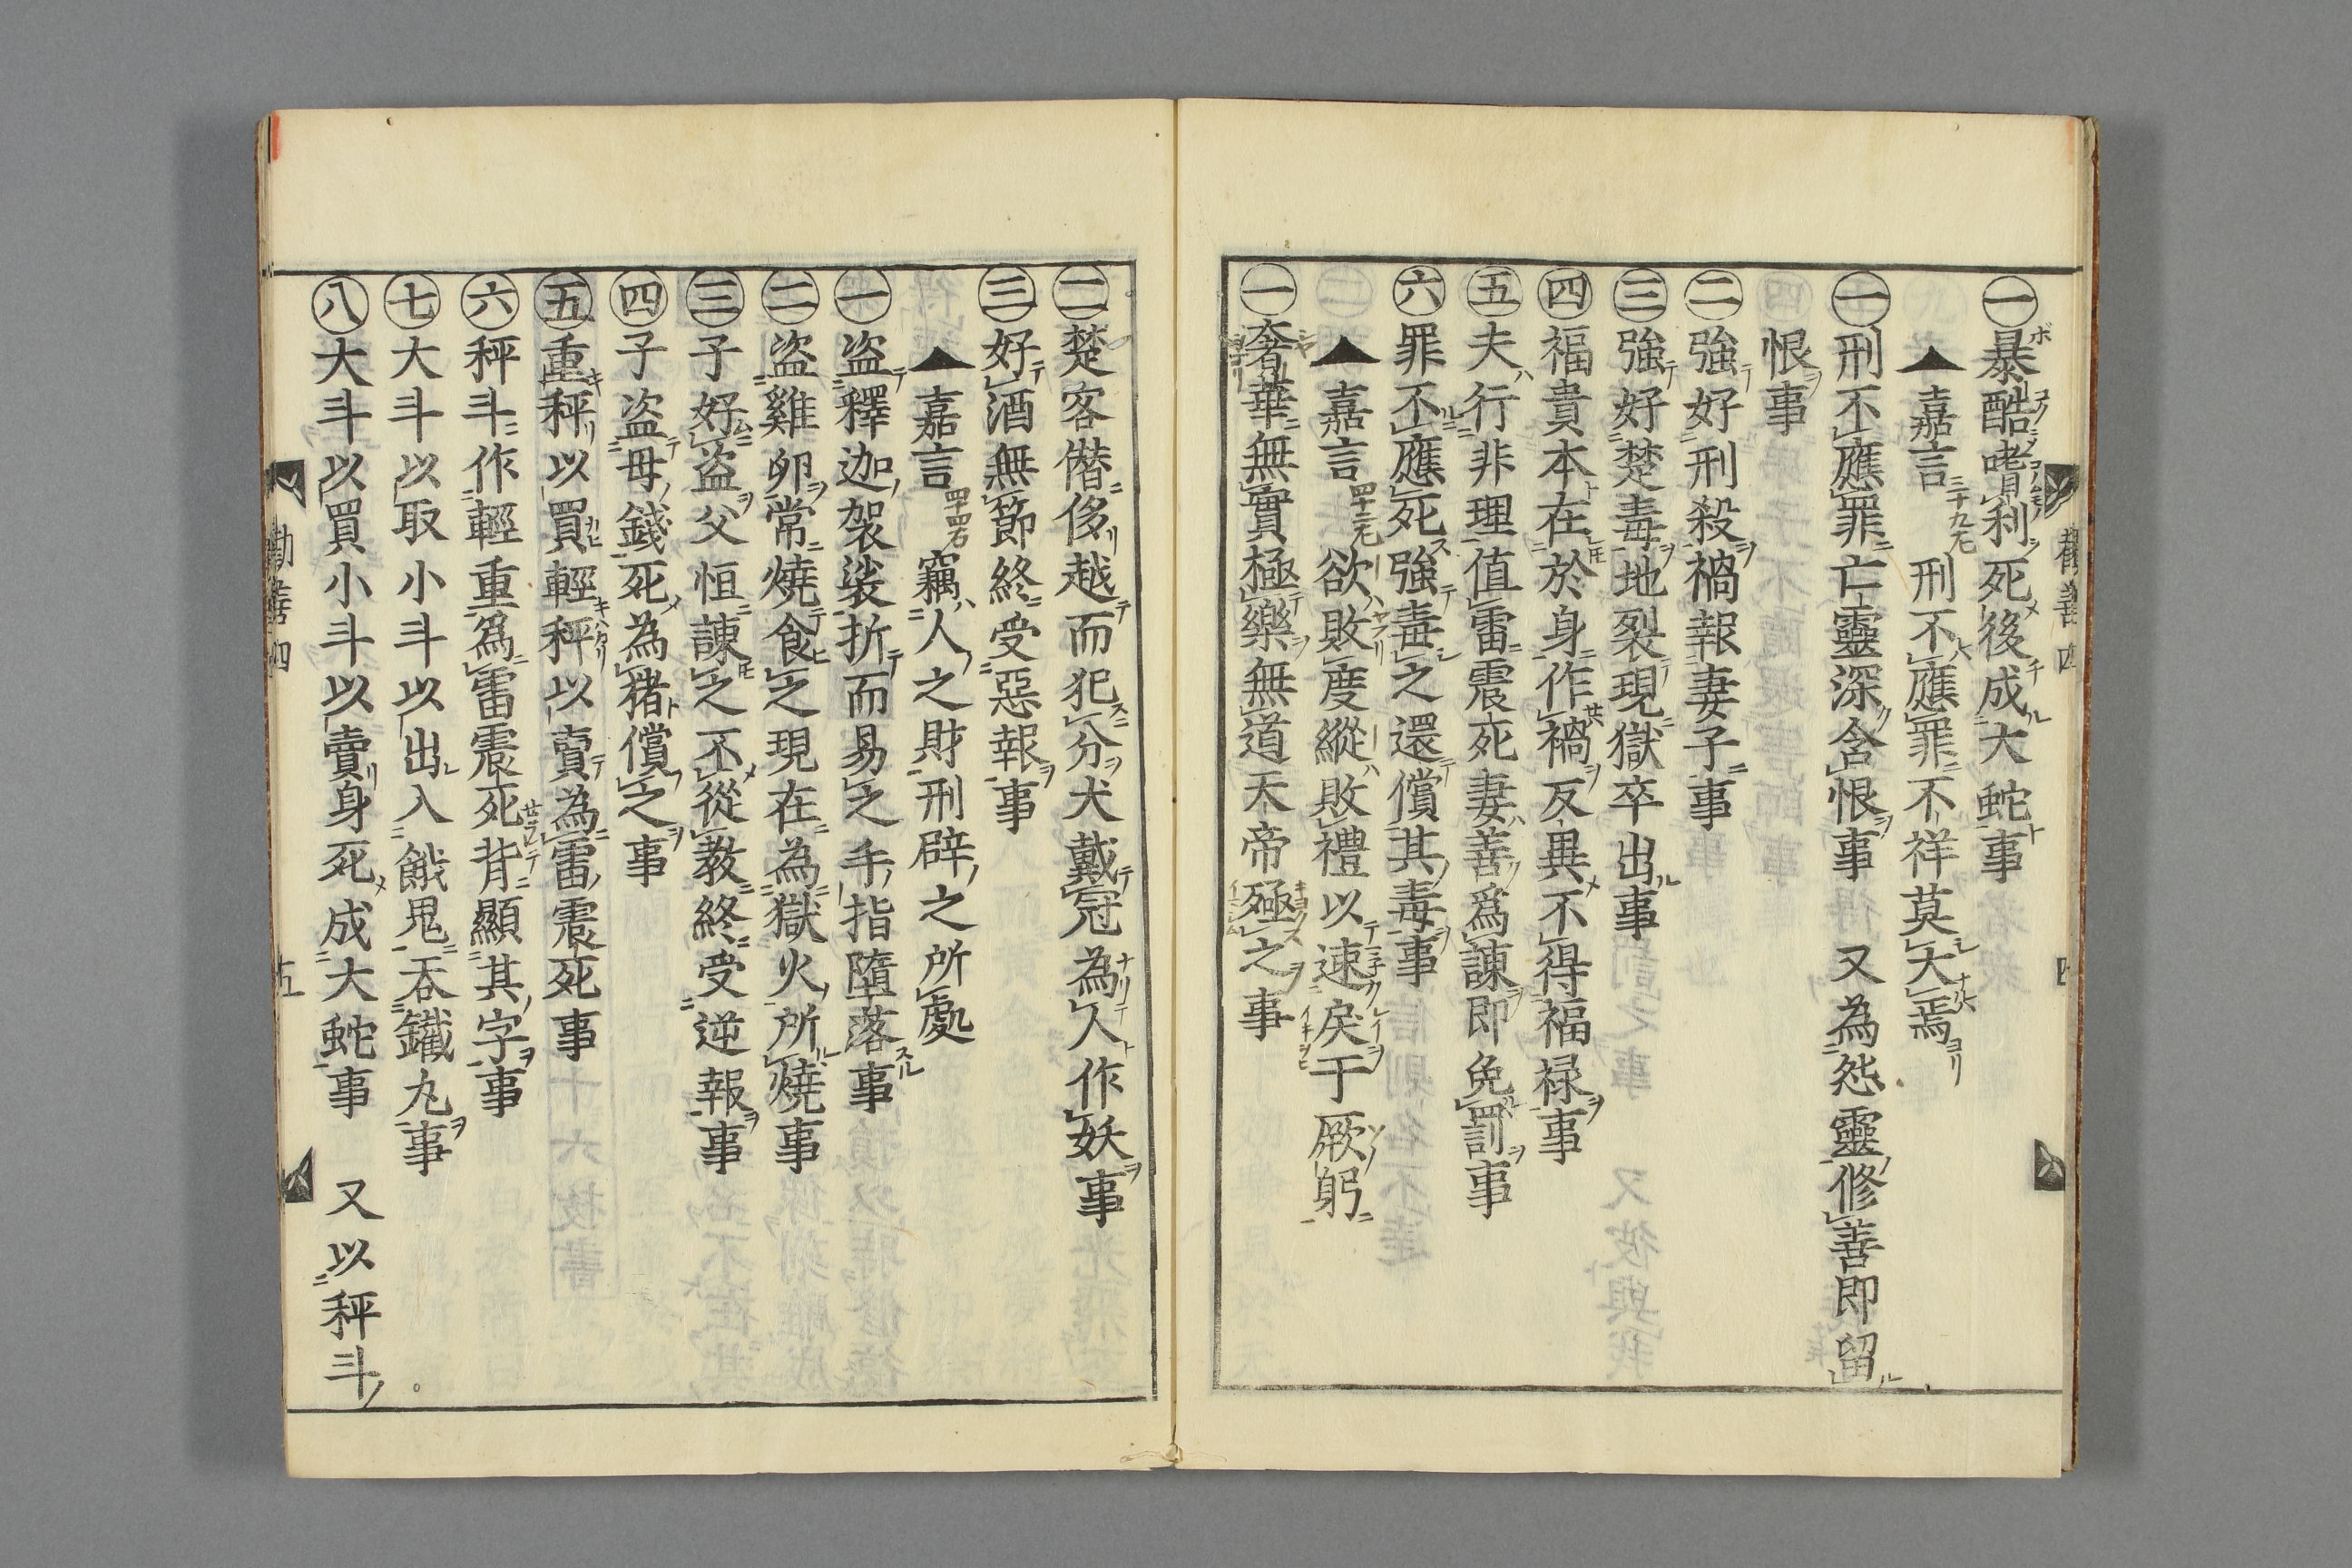 ㊀暴酷嗜利死後成大蛇事
▲嘉言三十九左 刑不應罪不祥莫大焉
㊀刑不應罪亡靈深含恨事 又為怨靈修善即留
恨事
㊁強好刑殺禍報妻子事
㊂強好楚毒地裂現獄卒出事
㊃福貴本在於身作禍反異不得福禄事
㊄夫行非理值雷震死妻善爲諫即免罰事
㊅罪不應死強毒之還償其毒事
▲嘉言四十三左 欲敗度縱敗禮以速戾于厥躬
㊀奢華無實極樂無道天帝殛之事
㊁楚客僭侈越而犯分犬戴冠為人作妖事
㊂好酒無節終受惡報事
▲嘉言四十四右 竊人之財刑辟之所處
㊀盗釋迦袈裟折而易之手指墮落事
㊁盗雞卵常燒食之現在為獄火所燒事
㊂子好盗父恒諫之不從教終受逆報事
㊃子盗母錢死為猪償之事
㊄重秤以買輕秤以賣為雷震死事
㊅秤斗作輕重為雷震死背顯其字事
㊆大斗以取小斗以出入餓鬼吞鐵丸事
㊇大斗以買小斗以賣身死成大蛇事 又以秤斗
勸善四 五